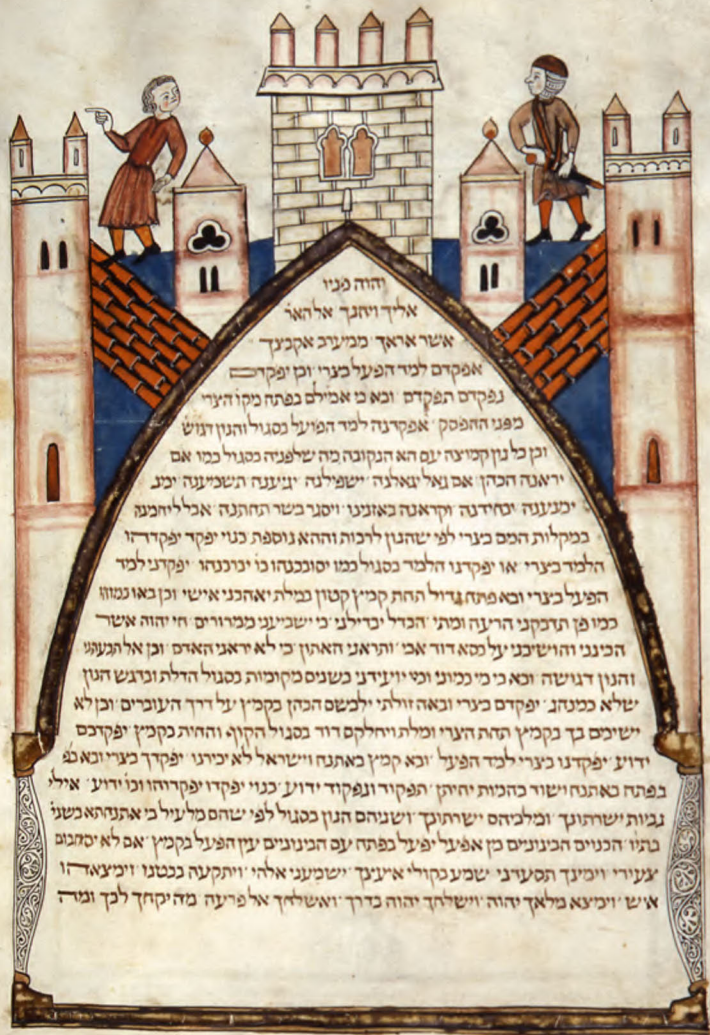 יהוה פניו
אליך ויחנך אל הארץ
אשר אראך ממערב אקבצך
אפקדם למד הפעל בצרי וכן יפקדם
נפקדם תפקדם ובא כו אמילם בפתח מקום הצרי
מפני ההפסק אפקדנה למד הפועל בסגול והנון דגוש
וכן כל נון קמוצה עם הא הנקבה מה שלפניה בסגול כמו אם
יראנה הכהן אם גאל יגאלנה ישפילנה יגיענה תשמיענה
ימנענה יכחידנה וקראנה באזנינו ויסגר בשר תחתנה אבל ליחמנה
במקלות המם בצרי לפי שהנון לרבות וההא נוספת כנוי יפקד יפקדהו
הלמד בצרי או יפקדנו הלמד בסגול כמו יסובבנהו כו יברכנהו יפקדני למד
הפיעל בצרי ובא פתח גדול תחת קמץ קטון במלת יאהבני אישי וכן באו
כמו פן תדבקני הרעה ומתי הבדל יבדילני כי ישביעני ממרורים חי יהוה אשר
הכינני והושיבני על כסא דוד אבי ותראני האתון כי לא יראני האדם וכן אל
והנון דגושה ובא כי מי כמוני ומי יועידני בשנים מקומות בסגול הדלת ובדגש הנון
שלא כמנהג יפקדם בצרי ובאה זולתי ילבשם הכהן בקמץ על דרך העוברים וכן לא
ישימם בך בקמץ תחת הצרי ומלת ויחלקם דוד בסגול הקוף והחית בקמץ יפקדכם
ידוע יפקדנו בצרי למד הפעל ובא קמץ באתנח וישראל לא יכירנו יפקדך בצרי ובא
בפתח באתנח וישוד כהכות יהיתן תפקיד ונפקוד ידוע כנוי יפקדו יפקדוהו וכו ידוע אילי
נביות ישרתונך ומלכיהם ישרתונך ושניהם הנון בסגול לפי שהם מלעיל כי אתנחתא בשני
בתיו הכנוים הבינונים מן אפעיל יפעיל בפתח עם הבינונים עין הפעל בקמץ אם לא יסחבום
צעירי וימינך תסעדני שמע בקולי איעצך ישמעני אלהי ויתקעה בבטנו וימצאהו
איש וימצא מלאך יהוה וישלחך יהוה בדרך ואשלחך אל פרעה מה יקחך לבך ומה